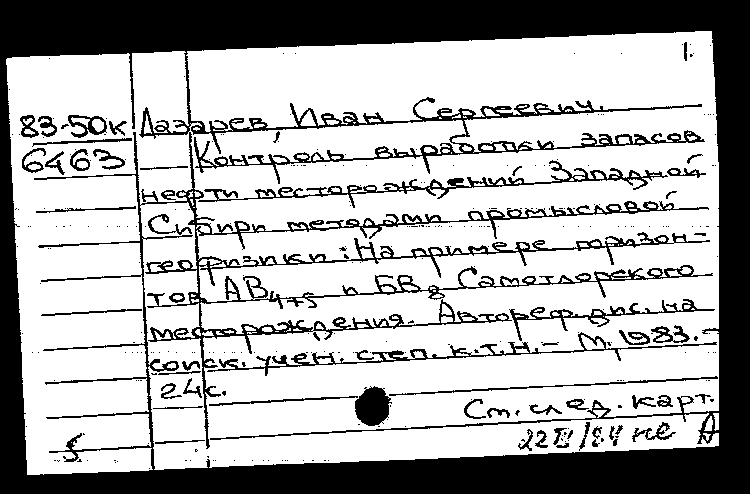 1.
83-50к Лазарев, Иван Сергеевич.
6463 Контроль выработки запасов
нефти месторождений Западной
Сибири методами промысловой
геофизики: На примере горизон-
тов АВ4+5 и БВ8 Самотлорского
месторождения. Автореф. дис. на
соиск. учен. степ. к.т.н. - М., 1983. -
24с.
См. след. карт.
/84 не А